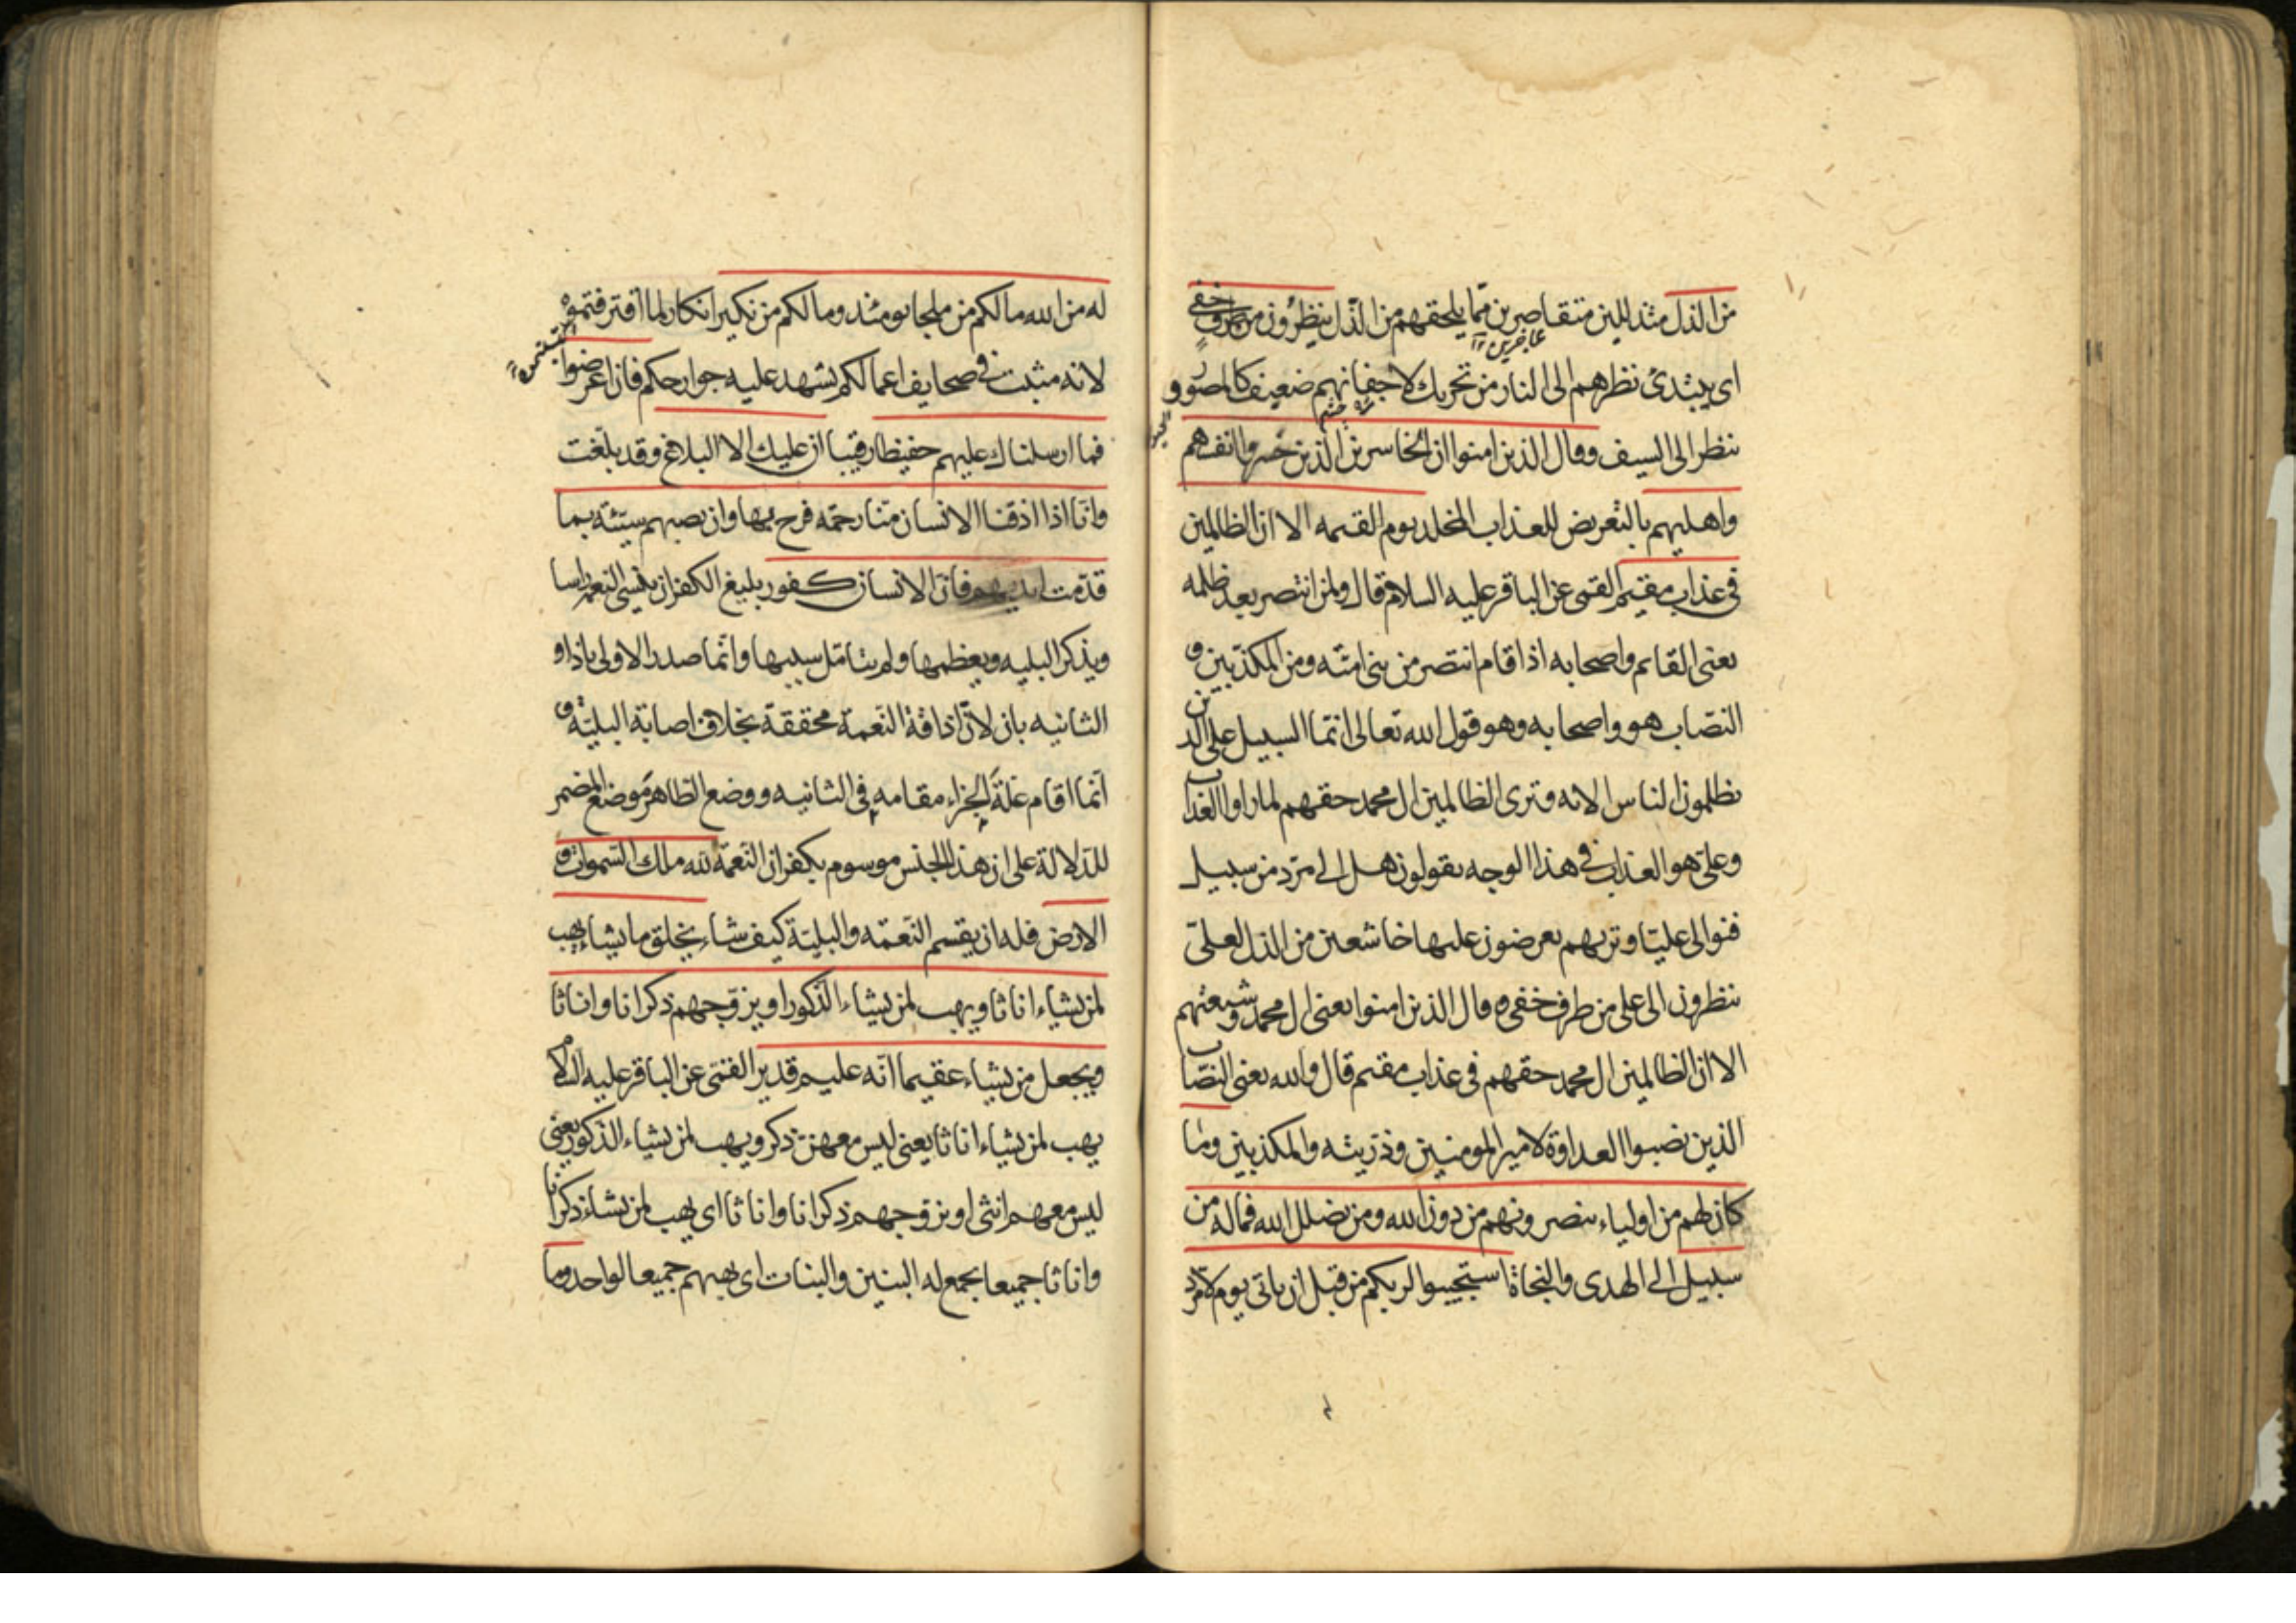 من الذل متذللين متقاصرين مما يلحقهم من الذل ينظرون من طرف خفى
عاجزين
اى يبتدئ نظرهم الى النار من تحريك لاجفانهم ضعيف كالمصور
ينظر الى السيف وقال الذين امنوا ان الخاسرين الذين خسروا انفسهم
واهليهم بالتعريض للعذاب المخلد يوم القيمه الا ان الظالمين
فى عذاب مقيم القمى عن الباقر عليه السلام قال ولمن انتصر بعد ظلمه
يعنى القايم واصحابه اذا قام انتصر من بنى اميّه ومن المكذبين و
النصّاب هو واصحابه وهو قول الله تعالى انّما السبيل على الذين
يظلمون الناس الايه وترى الظالمين ال محمد حقهم لما راوا العذاب
وعلىّ هو العذاب فى هذا الوجه يقولون هل الى مردّ من سبيل
فنوالى عليّا وتريهم يعرضون عليها خاشعين من الذل لعلىّ
ينظرون الى على من طرف خفى وقال الذين امنوا يعنى ال محمد وشيعتهم
الا ان الظالمين ال محمد حقهم فى عذاب مقيم قال والله يعنى النصّاب
الذين نصبوا العداوة لامير المومنين وذرّيته والمكذبين وما
كان لهم من اولياء ينصرونهم من دون الله ومن يضلل الله فماله من
سبيل الى الهدى والنجاة استجيبوا لربكم من قبل ان ياتى يوم لا مردّ
له من الله مالكم من ملجا يومئذ ومالكم من نكير انكار لما اقترفتموه
لانه مثبت فى صحايف اعمالكم يشهد عليه جوارحكم فان اعرضوا
فما ارسلناك عليهم حفيظا رقيبا ان عليك الا البلاغ وقد بلّغت
وانّا اذا اذقنا الانسان منّا رحمة فرح بها وان تصبهم سيّئة بما
قدّمت ايديهم فانّ الانسان كفور بليغ الكفران ينسى النعمه راسا
ويذكر البليه ويعظمها ولم يتامّل سببها وانّما صدر الاولى باذا و
الثانيه بان لانّ اذاقة النّعمة محققة بخلاف اصابة البليّة و
انّما اقام علّة الجزاء مقامه فى الثانيه ووضع الظاهر موضع المضمر
للدّلالة على ان هذا الجنس موسوم بكفران النّعمة لله ملك السّموات و
الارض فله ان يقسم النّعمه والبليّة كيف شاء يخلق ما يشاء يهب
لمن يشاء اناثا ويهب لمن يشاء الذّكور او يزوّجهم ذكرانا واناثا
ويجعل من يشاء عقيما انّه عليم قدير القمّى عن الباقر عليه السلام
يهب لمن يشاء اناثا يعنى ليس معهنّ ذكر ويهب لمن يشاء الذكور يعنى
ليس معهم انثى او يزوجهم ذكرانا واناثا اى يهب لمن يشاء ذكرانا
واناثا جميعا يجمع له البنين والبنات اى يهبهم جميعا لواحد وما